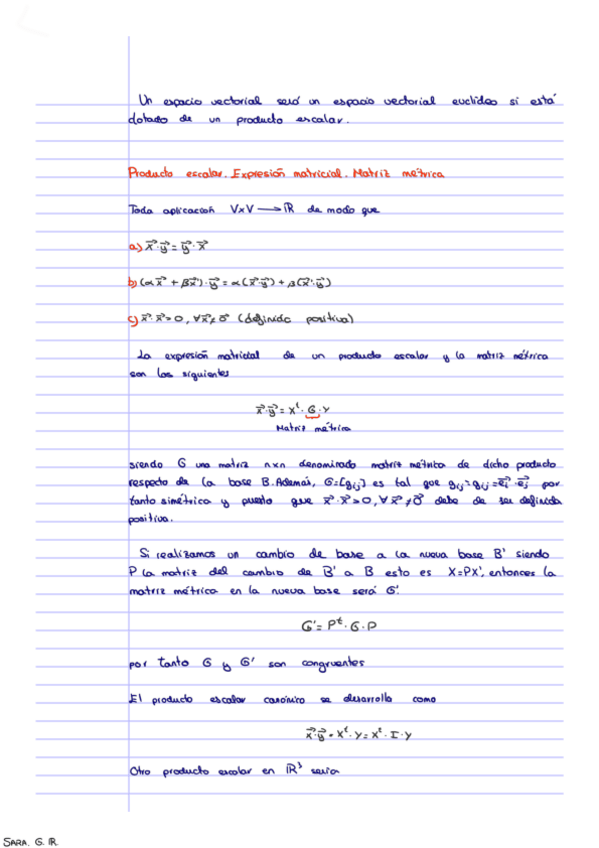 Un espacio vectorial será un espacio vectorial euclídeo si está
dotado de un producto escalar.
Producto escalar. Expresión matricial. Matriz métrica
Toda aplicación V×V → ℝ de modo que
a) x⃗·y⃗ = y⃗·x⃗
b) (αx⃗ + βx⃗')·y⃗ = α(x⃗·y⃗) + β(x⃗'·y⃗)
c) x⃗·x⃗ > 0, ∀x⃗ ≠ 0⃗ (definido positiva)
La expresión matricial de un producto escalar y la matriz métrica
son las siguientes
x⃗·y⃗ = Xᵗ·G·Y
Matriz métrica
siendo G una matriz n×n denominada matriz métrica de dicho producto
respecto de la base B. Además, G=[gᵢⱼ] es tal que gᵢⱼ=gᵢⱼ=e⃗ᵢ·e⃗ⱼ por
tanto simétrica y puesto que x⃗·x⃗ > 0, ∀x⃗ ≠ 0⃗ debe de ser definida
positiva.
Si realizamos un cambio de base a la nueva base B' siendo
P la matriz del cambio de B' a B esto es X=PX', entonces la
matriz métrica en la nueva base será G'.
G' = Pᵗ·G·P
por tanto G y G' son congruentes
El producto escalar canónico se desarrolla como
x⃗·y⃗ = Xᵗ·Y = Xᵗ·I·Y
Otro producto escalar en ℝ³ sería
SARA. G. R.